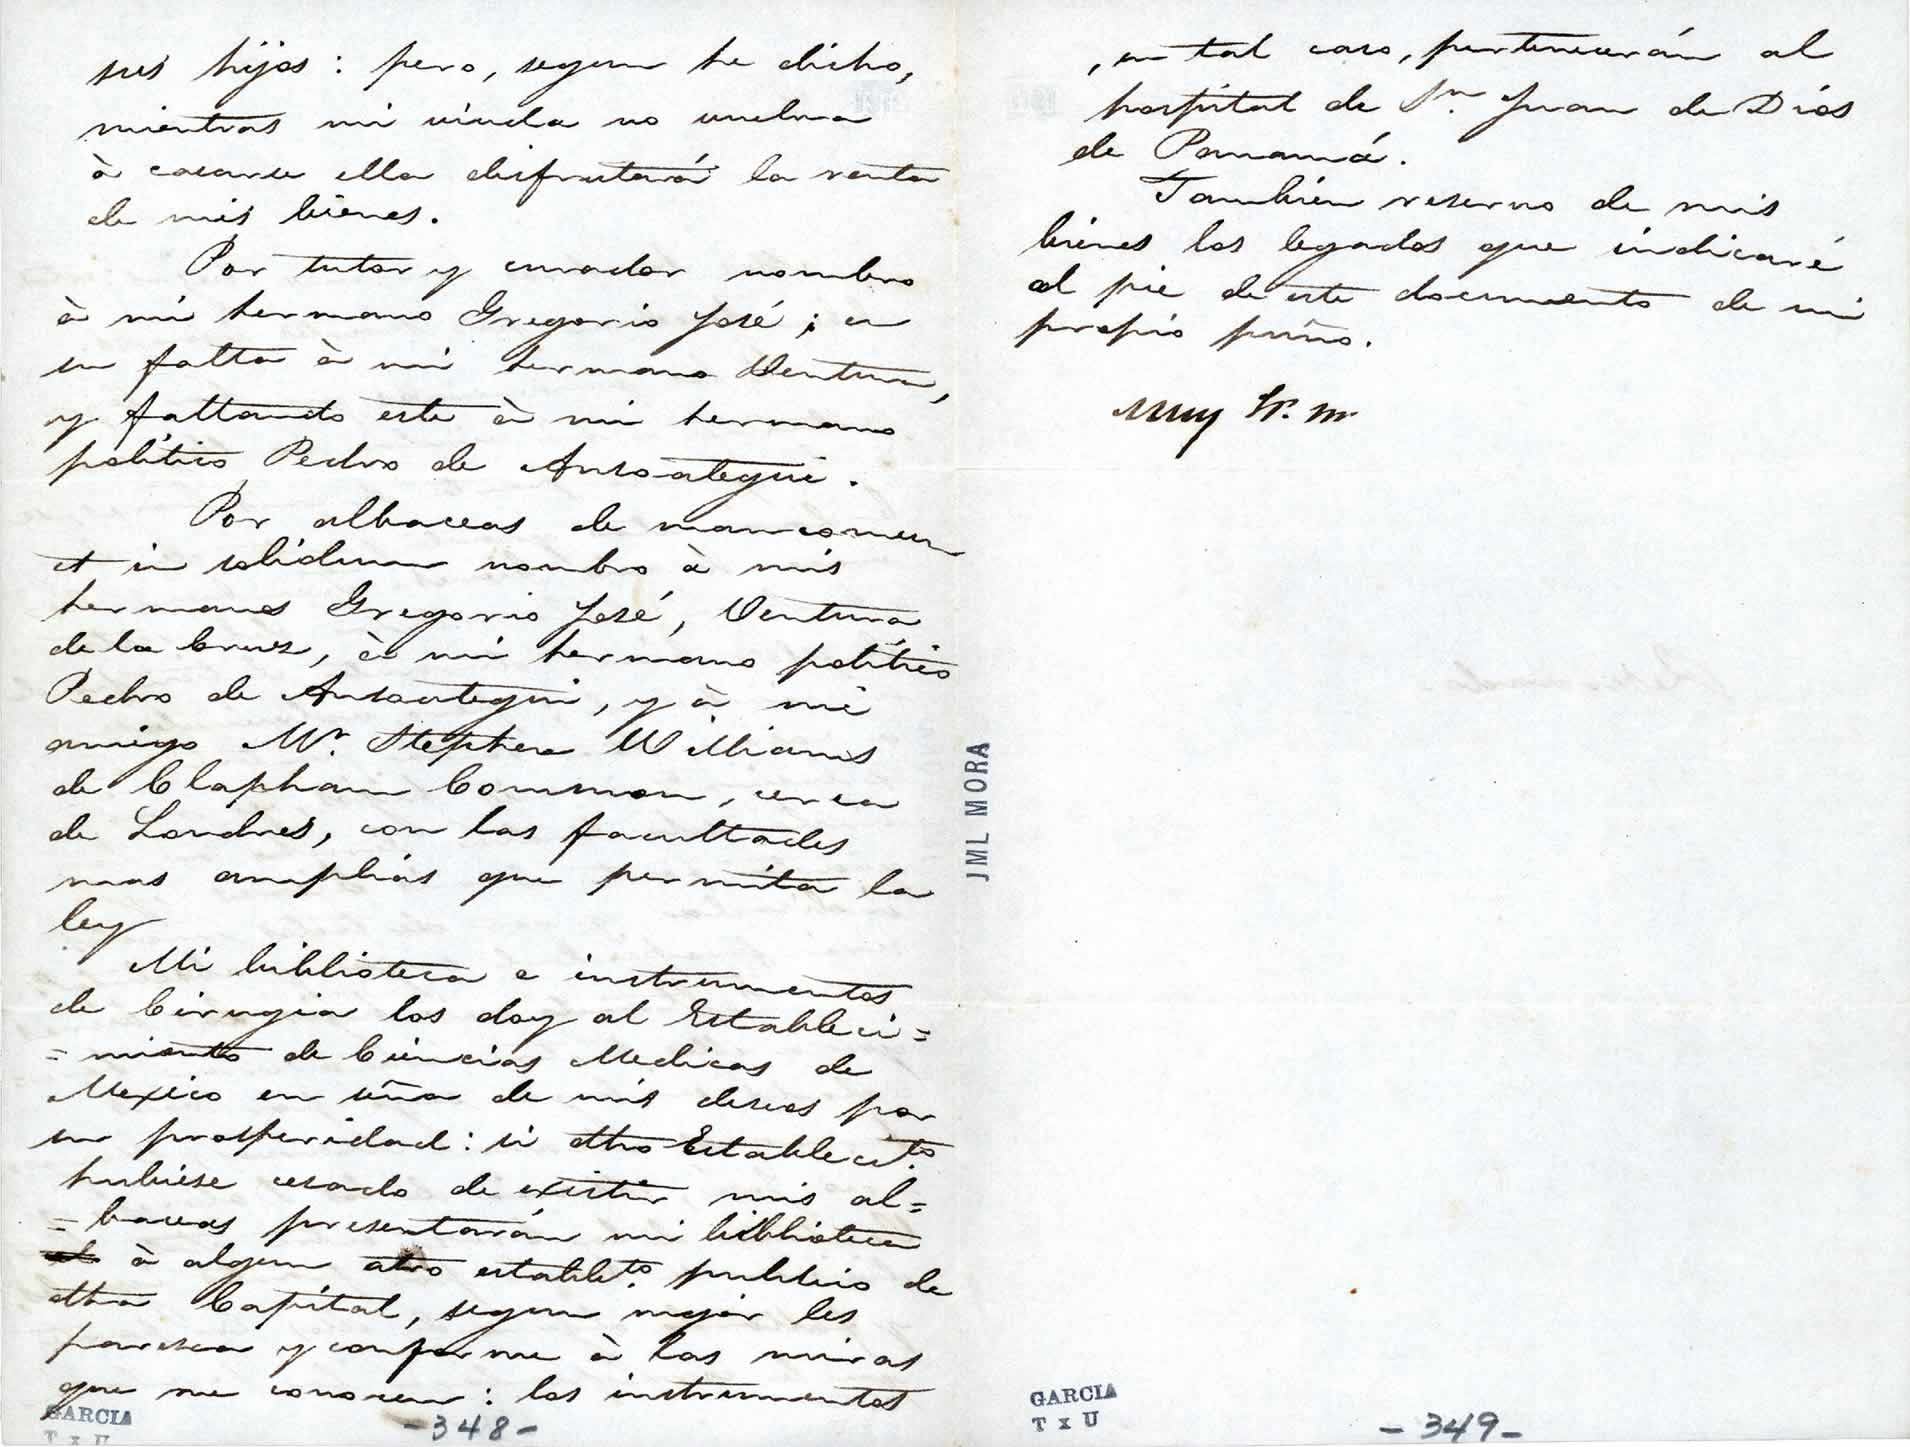 sus hijos: pero, segun he dicho,
mientras mi viuda no vuelva
à casarse ella disfrutará la renta
de mis bienes.
Por tutor y curador nombro
à mi hermano Gregorio José; en
su falta à mi hermano Ventura,
y faltando este à mi hermano
politico Pedro de Ansoategui.
Por albaceas de mancomun
et in solidum nombro à mis
hermanos Gregorio José, Ventura
de la Cruz, à mi hermano politico
Pedro de Ansoategui, y à mi
amigo Mr. Stephen Williams
de Clapham Common, cerca
de Londres, con las facultades
mas amplias que permita la
ley
Mi biblioteca e instrumentos
de Cirugia los doy al Estableci=
=miento de Ciencias Medicas de
Mexico en seña de mis deseos por
su prosperidad: si dho Establecito.
hubiese cesado de existir mis al=
=baceas presentarán mi biblioteca
à algun otro establto. publico de
dha Capital, segun mejor les
paresca y conforme à las miras
que me conocen: los instrumentos
GARCIA
T x U
-348-
, en tal caso, pertenecerán al
hospital de Sn. Juan de Dios
de Panamá.
Tambien reservo de mis
bienes los legados que indicaré
al pie de este documento de mi
propio puño.
JML MORA
GARCIA
T x U
-349-